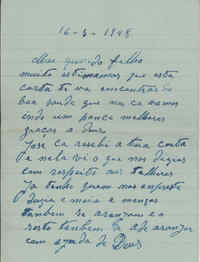 16-3-1948
Meu querido filho
muito estimamos que esta
carta te vá encontrar de
boa saude que nos cá vamos
indo um pouco melhores
graças a deus
José ca resebi a tua carta
e nela vi o que nos dizias
com respeito aos talheres
Ja tenho quem nos empreste
duzia e meia e
tambem se aranjam e o
resto tambem se ade aranjar
com ajuda de Deus